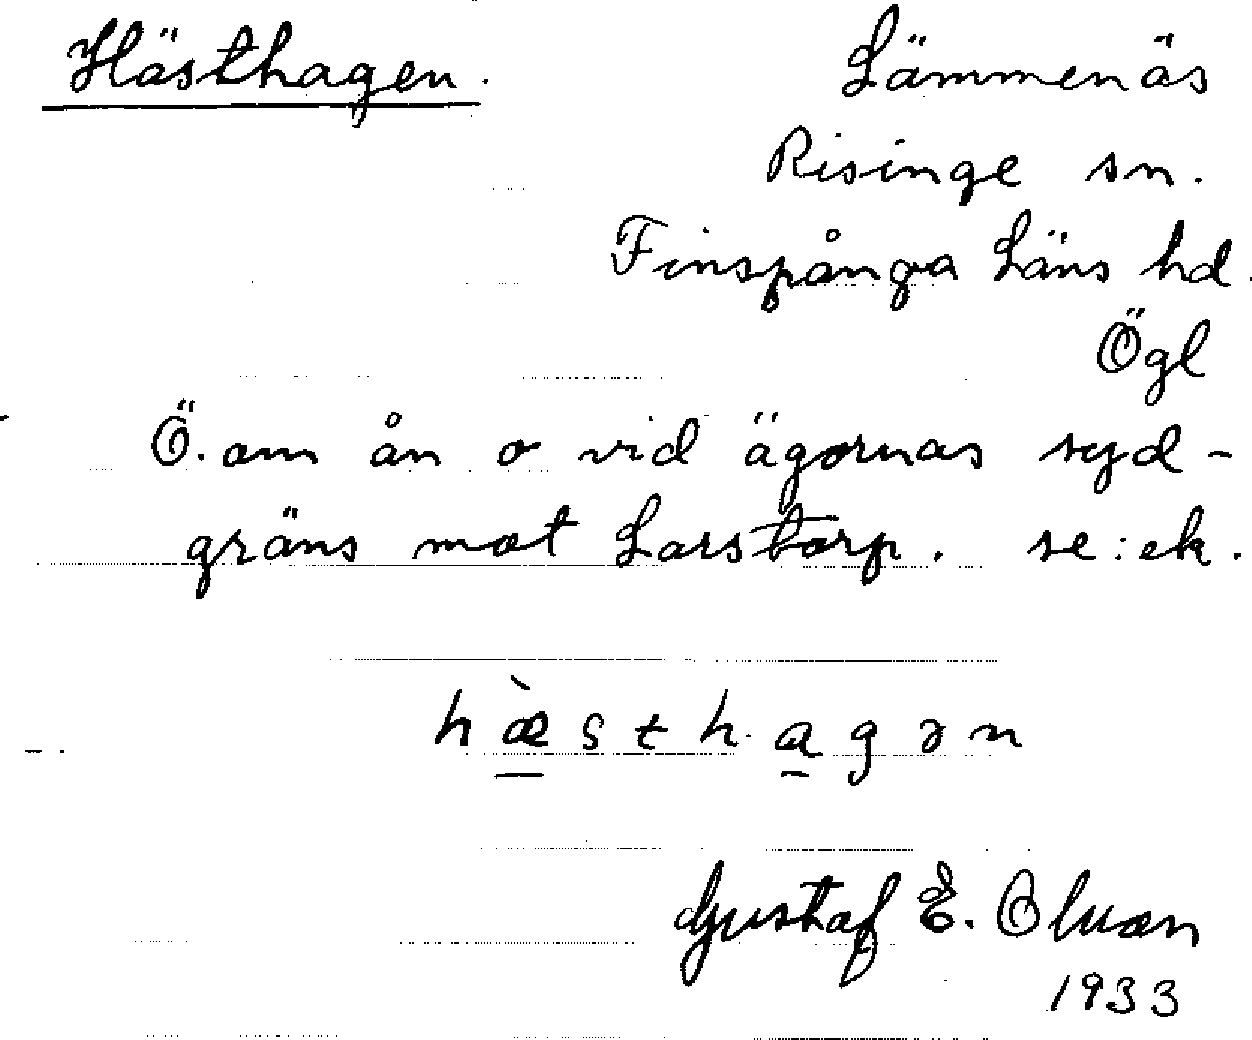 Hästhagen.
Lämmenäs
Risinge sn.
Finspånga Läns hd.
Ögl
Ö. om ån o vid ägornas syd-
gräns mot Larstorp. se: ek.
hæ̀sthagən
Gustaf E. Olwan
1933